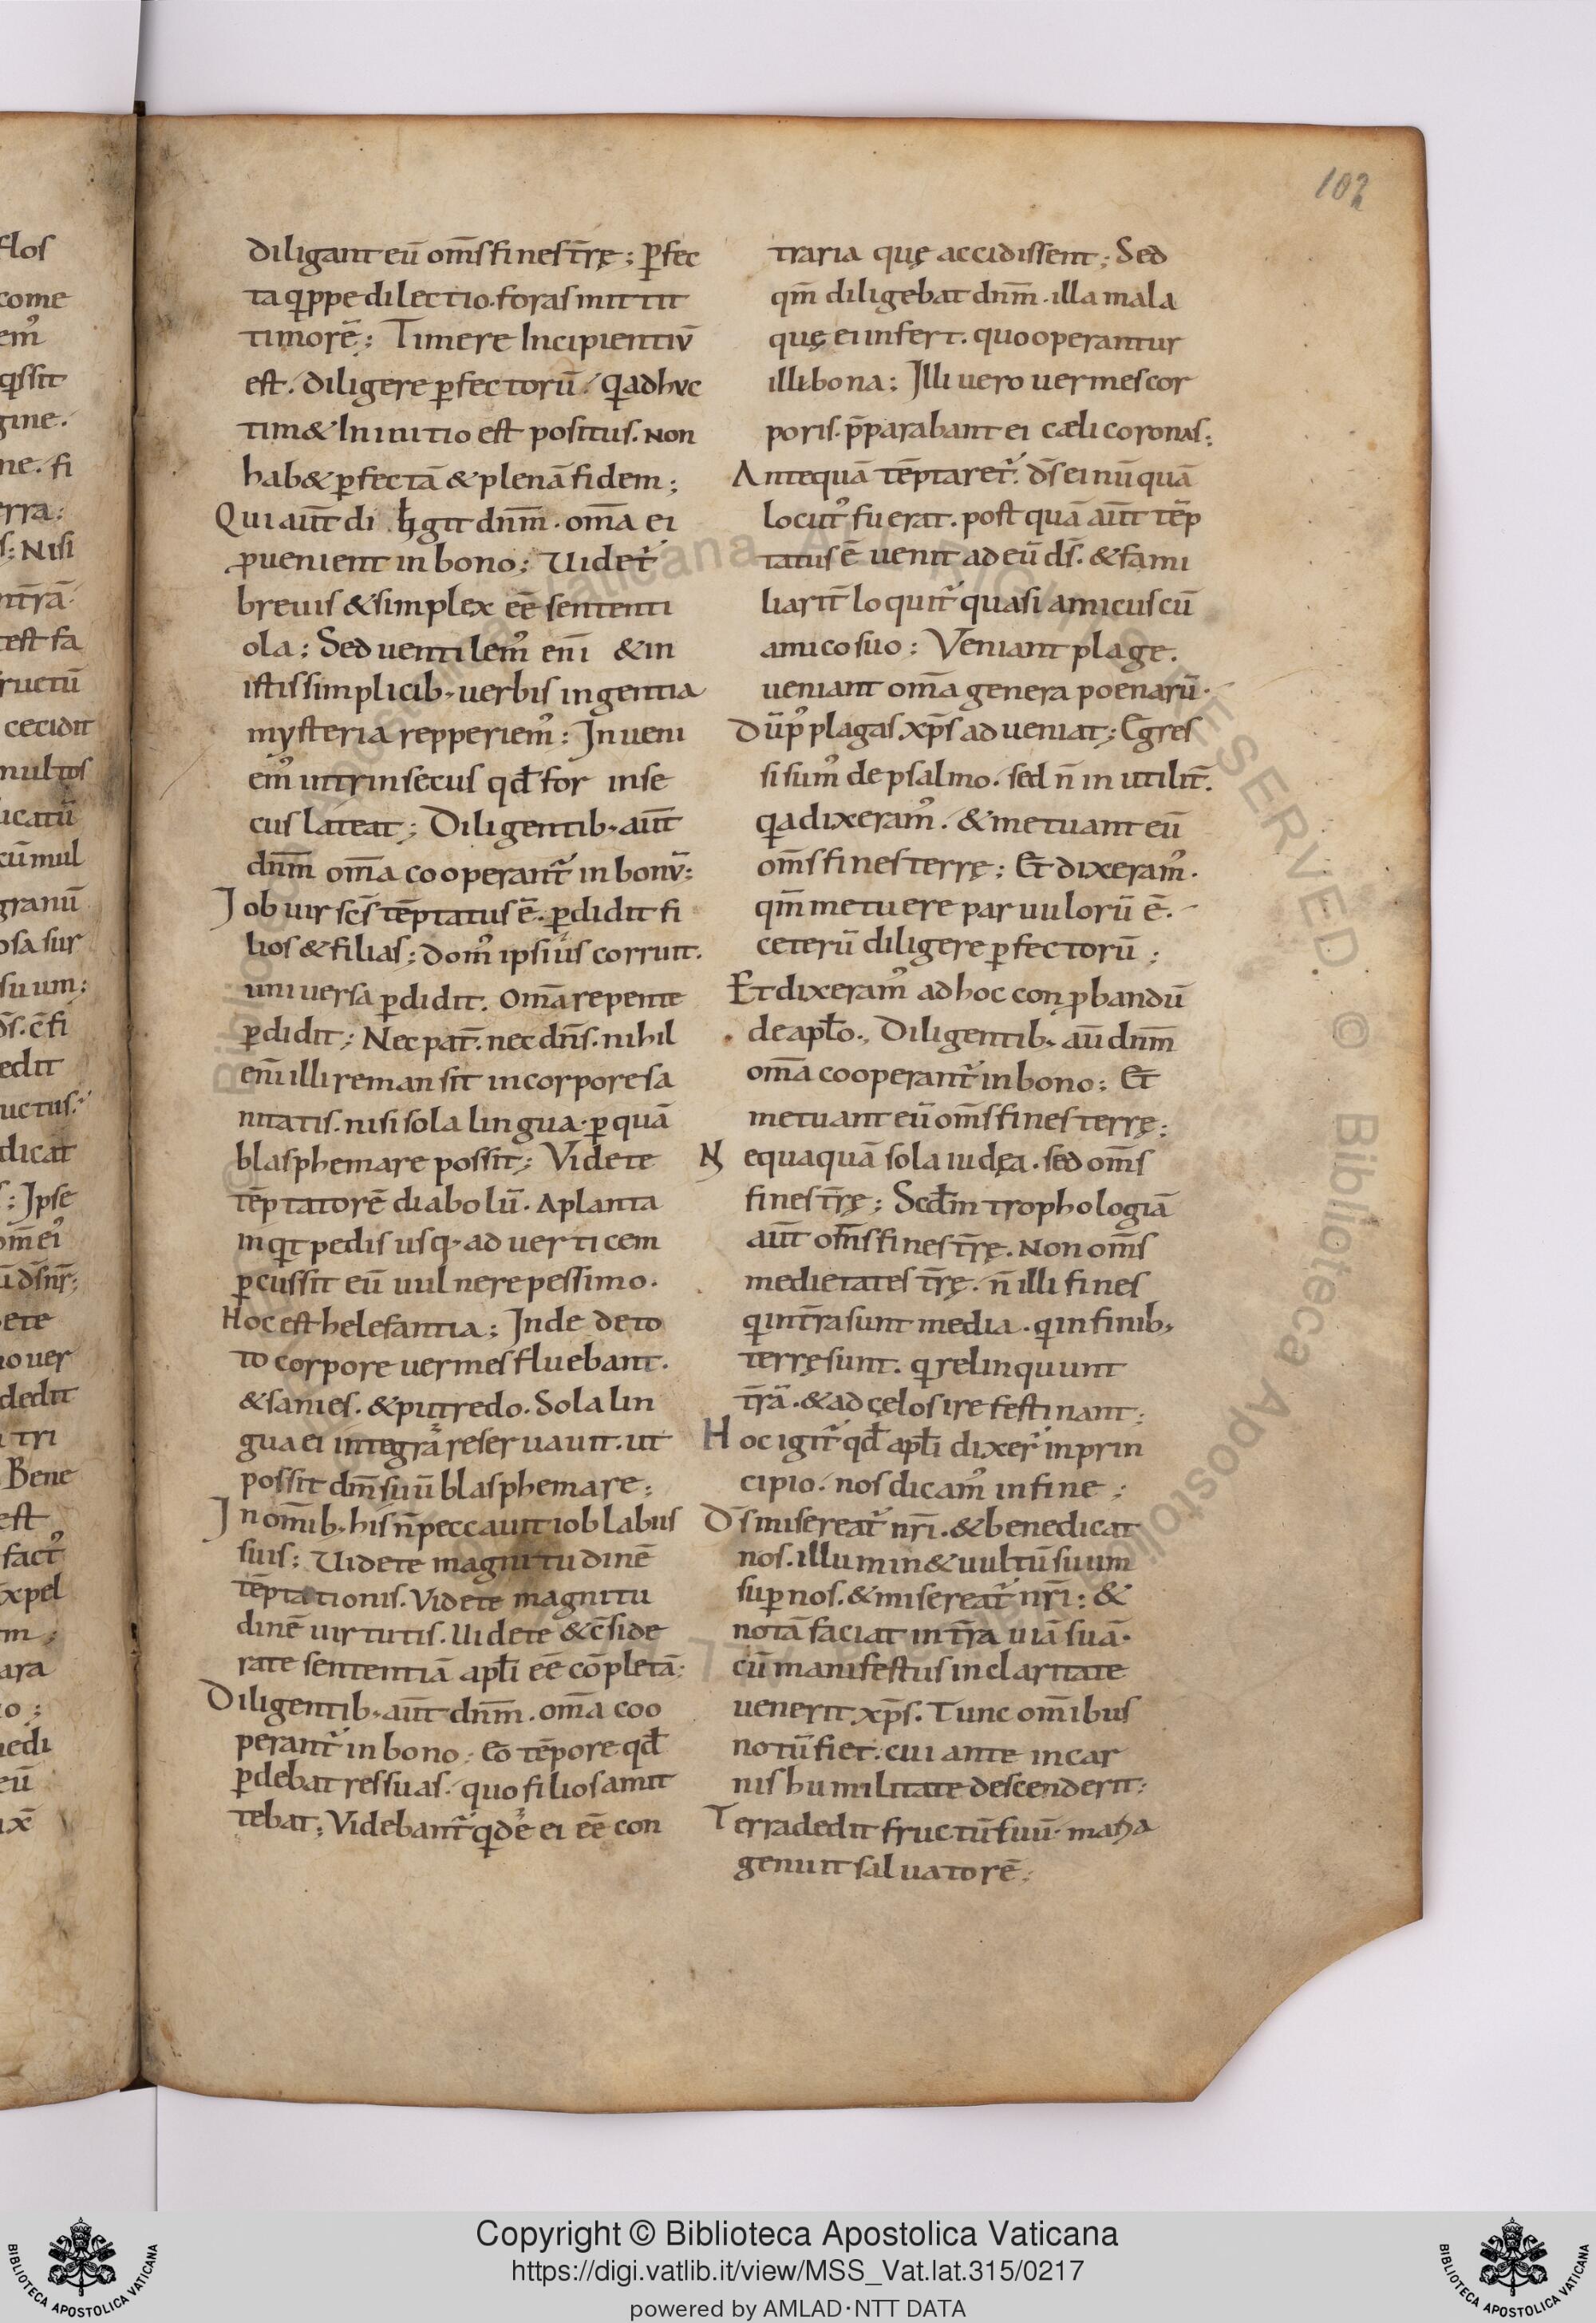 102
diligant eū om̄s fines t̄rę; ꝑfec
ta q̇ppe dilectio. foras mittit
timorē; Timere Incipientiū
est. diligere ꝑfectorū. q̇a adhvc
tim& In initio est positus. non
hab& ꝑfectā & plenā fidem;
Qui aūt diligit dnm̄. om̄a ei
ꝓuenient in bono; Uidet᷑
breuis & simplex eē sententi
ola; Sed uentilem᷒ eni &in
istis simplicib; uerbis ingentia
mysteria repperiem᷒; Inueni
em᷒ intrinsecus qđ for inse
cus lateat; Diligentib; aūt
dnm̄ om̄a cooperant᷑ in bonū;
Job uir scs̄ tēptatus ē. ꝑdidit fi
lios & filias; dom᷒ ipsius corruit.
uniuersa ꝑdidit. Om̄a repente
ꝑdidit; Nec pat̄. nec dn̄s. nihil
eni illi remansit in corpore sa
nitatis. nisi sola lingua. ꝑ quā
blasphemare possit; Videte
tēptatorē diabolū. A planta
inqt pedis usq; ad uerticem
ꝑcussit eū uulnere pessimo.
Hoc est helefantia; Inde de to
to corpore uermes fluebant.
& sanies. & putredo. Sola lin
gua ei integra reseruauit. ut
possit dm̄ suū blasphemare;
In om̄ib; his n̄ peccauit iob labiis
suis; Uidete magnitudinē
tēptationis. Videte magnitu
dinē uirtutis. Uidete & c̄side
rate sententiā apłi eē cōpletā;
Diligentib; aūt dnm̄. om̄a coo
perant᷑ in bono; Eo tēpore qđ
ꝑdebat res suas. quo filios amit
tebat; Videbant᷑ q̇dē ei eē con
traria quę accidissent; Sed
qm̄ diligebat dnm̄. illa mala
quę ei infert. quo operantur
illi bona; Illi uero uermes cor
poris. p̄parabant ei cæli coronas;
Antequā tēptaret᷑. ds̄ ei nūquā
locut᷒ fuerat. postquā aūt tēp
tatus ē uenit ad eū ds̄. & fami
liarit̄ loquit᷑ quasi amicus cū
amico suo; Veniant plage.
ueniant om̄a genera poenarū.
Dū p᷒ plagas. xp̄s adueniat; Egres
si sum᷒ de psalmo. sed n̄ inutilit̄.
q̇a dixeram᷒. & metuant eū
om̄s fines terrę; Et dixeram᷒.
qm̄ metuere paruulorū ē.
ceterū diligere ꝑfectorū;
Et dixeram᷒ ad hoc conꝓbandū
de apło. Diligentib; aū dnm̄
om̄a cooperant᷑ in bono; Et
metuant eū om̄s fines terrę;
Nequaquā sola iudęa. sed om̄s
fines t̄rę; Scdm̄ trophologiā
aūt om̄s fines t̄rę. Non om̄s
medietates t̄rę. n̄ illi fines
q̇ in t̄ra sunt media. q̇ in finib;
terrę sunt. q̇ relinquunt
t̄rā. & ad cęlos ire festinant;
Hoc igit᷑ qđ apłi dixer᷑ in prin
cipio. nos dicam᷒ in fine;
Ds̄ misereat᷑ nr̄i. & benedicat
nos. illumin& uultū suum
suꝑ nos. & misereat᷑ nr̄i; &
notā faciat in t̄ra uiā suā.
cū manifestus in claritate
uenerit xp̄s. Tunc omībus
notū fiet. cui ante in car
nis humilitate descenderit;
Terra dedit fructū suū. maria
genuit saluatorē;
Copyright © Biblioteca Apostolica Vaticana
https://digi.vatlib.it/view/MSS_Vat.lat.315/0217
powered by AMLAD·NTT DATA